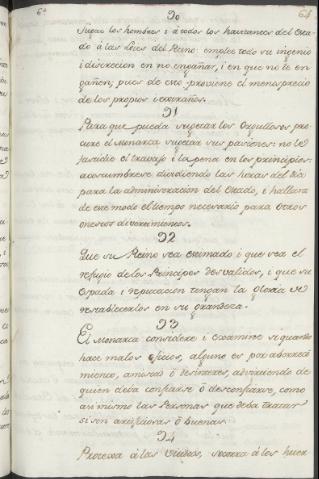 90
Sugete los hombres i á todos los havitantes del Esta-
do á las Leies del Reino: emplee todo su ingenio
i discrecion en no engañar, i en que no le en-
gañen, pues de esto proviene el menosprecio
de los propios i extraños.
91
Para que pueda sugetar los Orgullosos pro-
cure el Monarca sugetar sus pasiones: no le
fastidie el travajo i la pena en los principios:
acostumbrese dividiendo las horas del Dia
para la administracion del Estado, i hallara
de ese modo el tiempo necesario para otros
onestos divertimientos.
92
Que su Reino sea estimado i que sea el
refugio de los Principes desvalidos, i que su
Espada i reputacion tengan la gloria de
restablecerlos en su grandeza.
93
El Monarca considere i examine si quando
hace malos oficios, alguno es por aborreci-
miento, amistad ó intereses, advirtiendo de
quien deva confiarse ó desconfiarse, como
asi mismo las Personas que deva tratar
si son artificiosas ó buenas.
94
Protexa á las Viudas, socorra á los huer-